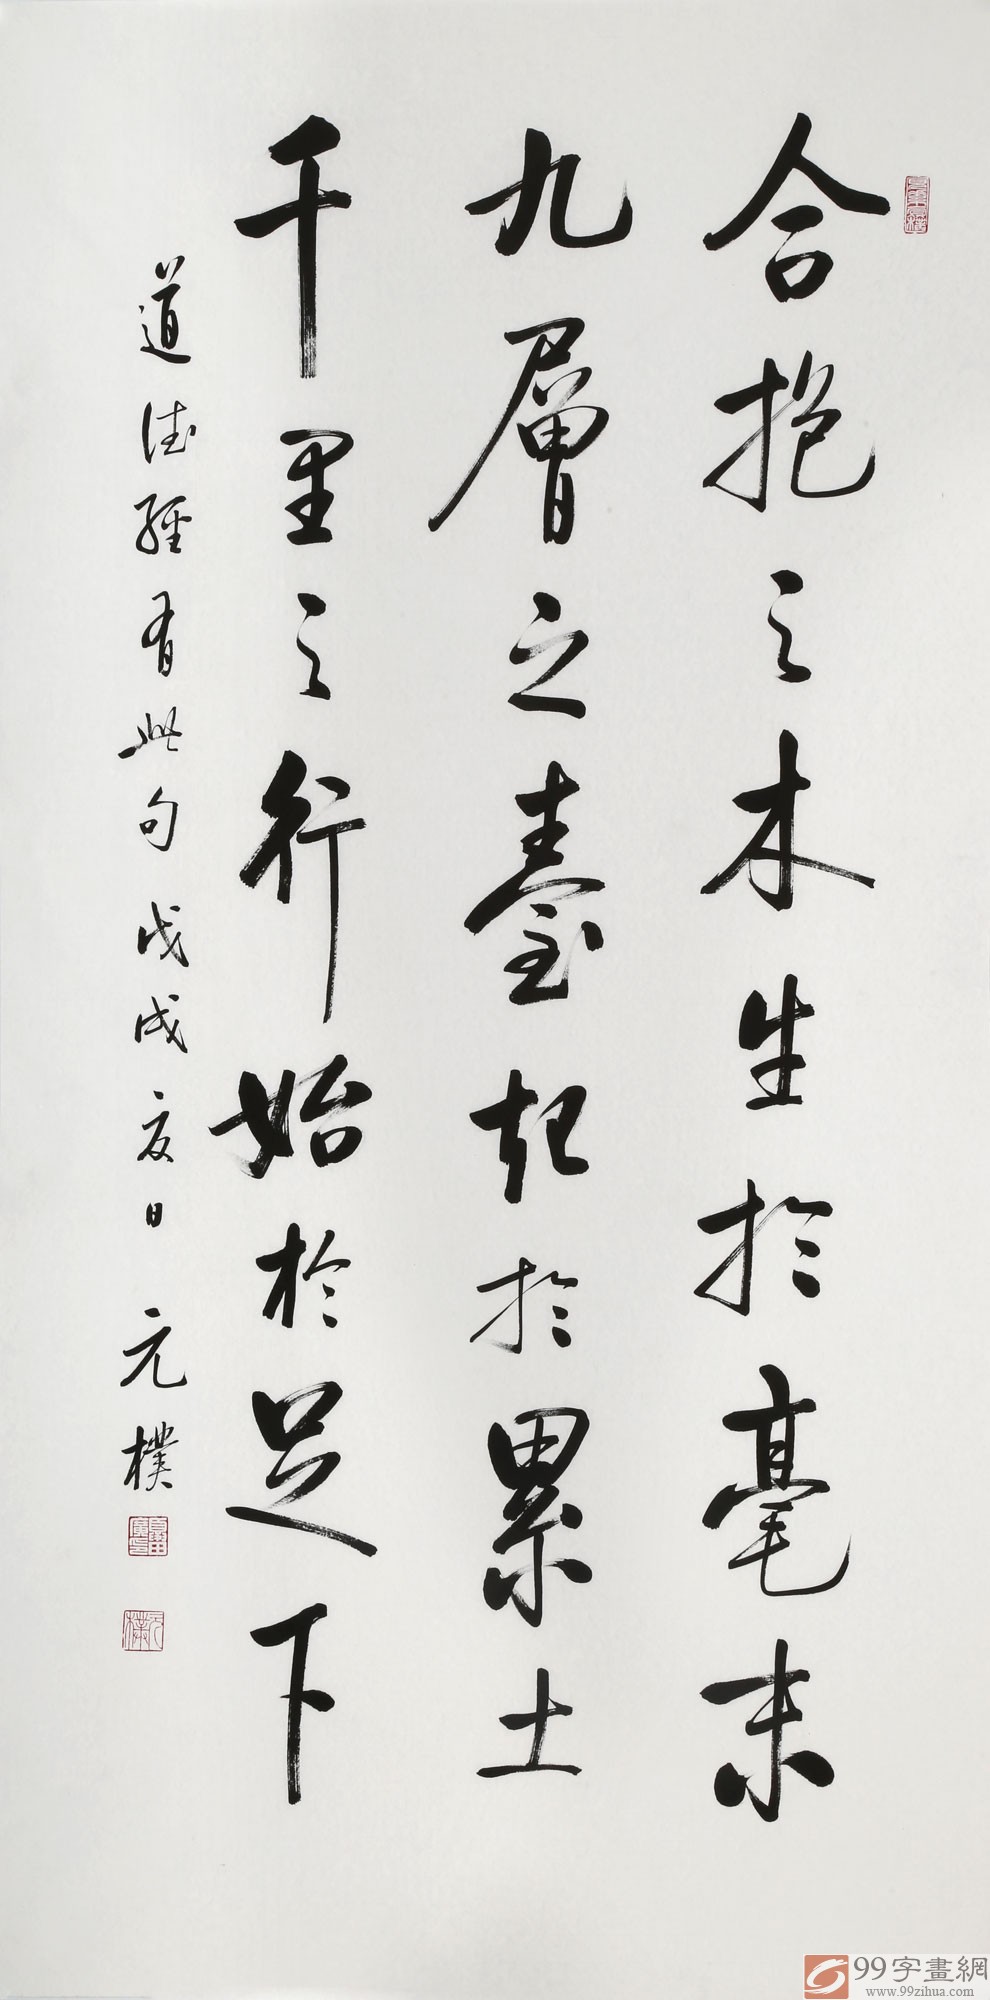 合抱之木生於毫末
九層之臺起於累土
千里之行始於足下
道德經有此句戊戌夏日元樸
99字畫網
www.99zihua.com